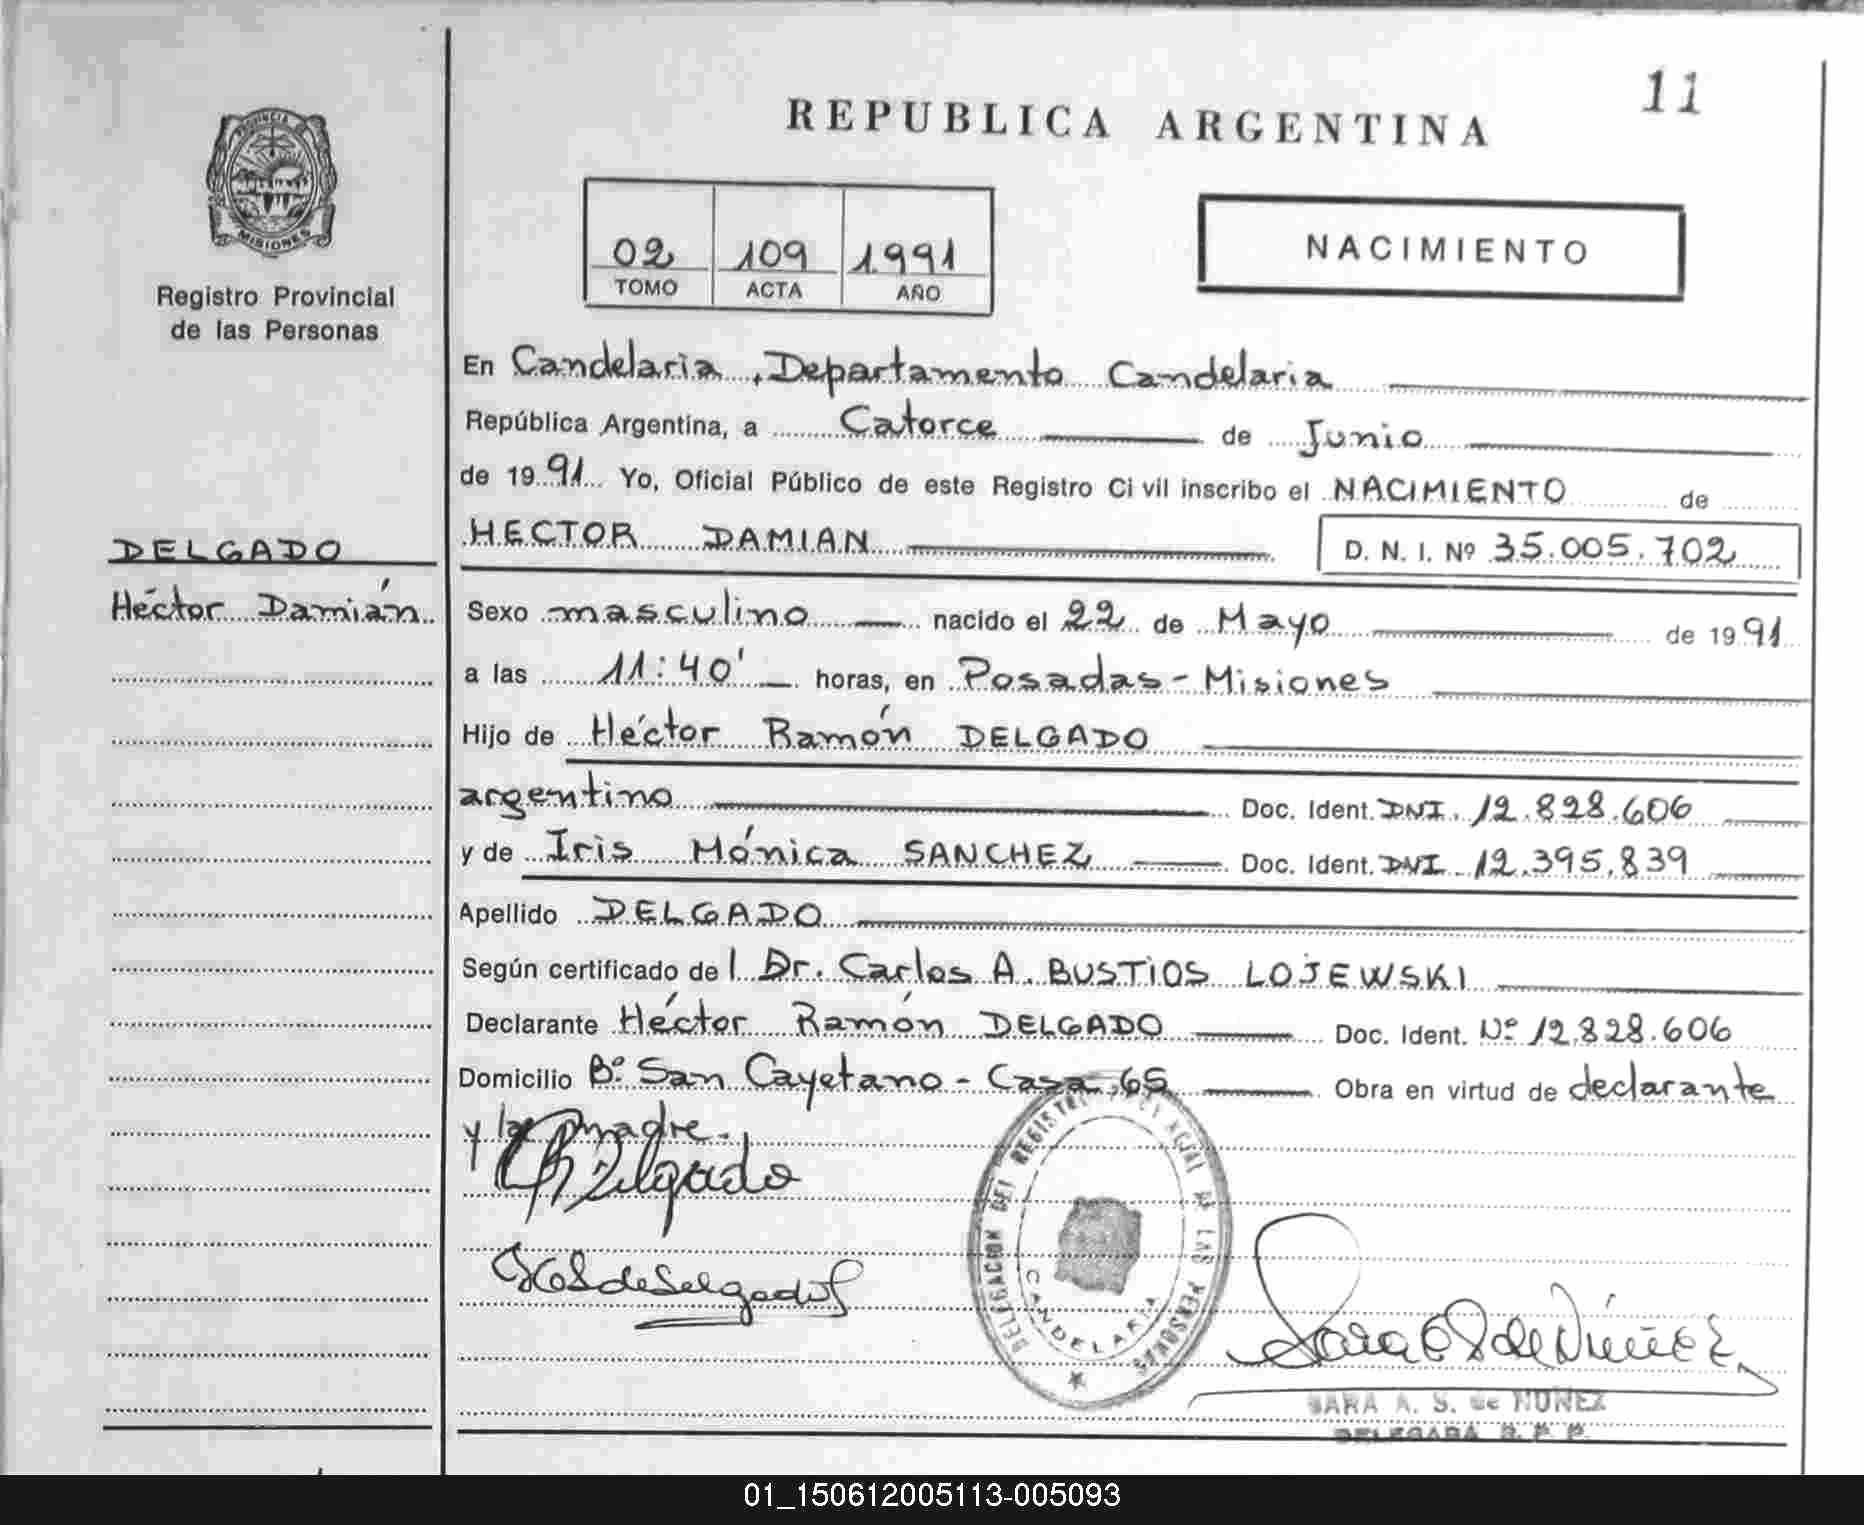 11
REPUBLICA ARGENTINA
PROVINCIA DE
MISIONES
Registro Provincial
de las Personas
02 109 1991
TOMO ACTA AÑO
NACIMIENTO
En Candelaria, Departamento Candelaria
República Argentina, a Catorce de Junio
de 1991 Yo, Oficial Público de este Registro Civil inscribo el NACIMIENTO de
HECTOR DAMIAN D. N. I. Nº 35.005.702
DELGADO
Héctor Damián
Sexo masculino nacido el 22 de Mayo de 1991
a las 11:40' horas, en Posadas - Misiones
Hijo de Héctor Ramón DELGADO
argentino Doc. Ident. DNI. 12.828.606
y de Iris Mónica SANCHEZ Doc. Ident. DNI. 12.395.839
Apellido DELGADO
Según certificado del Dr. Carlos A. BUSTIOS LOJEWSKI
Declarante Héctor Ramón DELGADO Doc. Ident. Nº 12.828.606
Domicilio Bº San Cayetano - Casa 65 Obra en virtud de declarante
y la madre.
Delgado
DELEGACION DEL REGISTRO PROVINCIAL DE LAS PERSONAS
CANDELARIA
SARA A. S. de NUÑEZ
DELEGADA R. P. P.
01_150612005113-005093